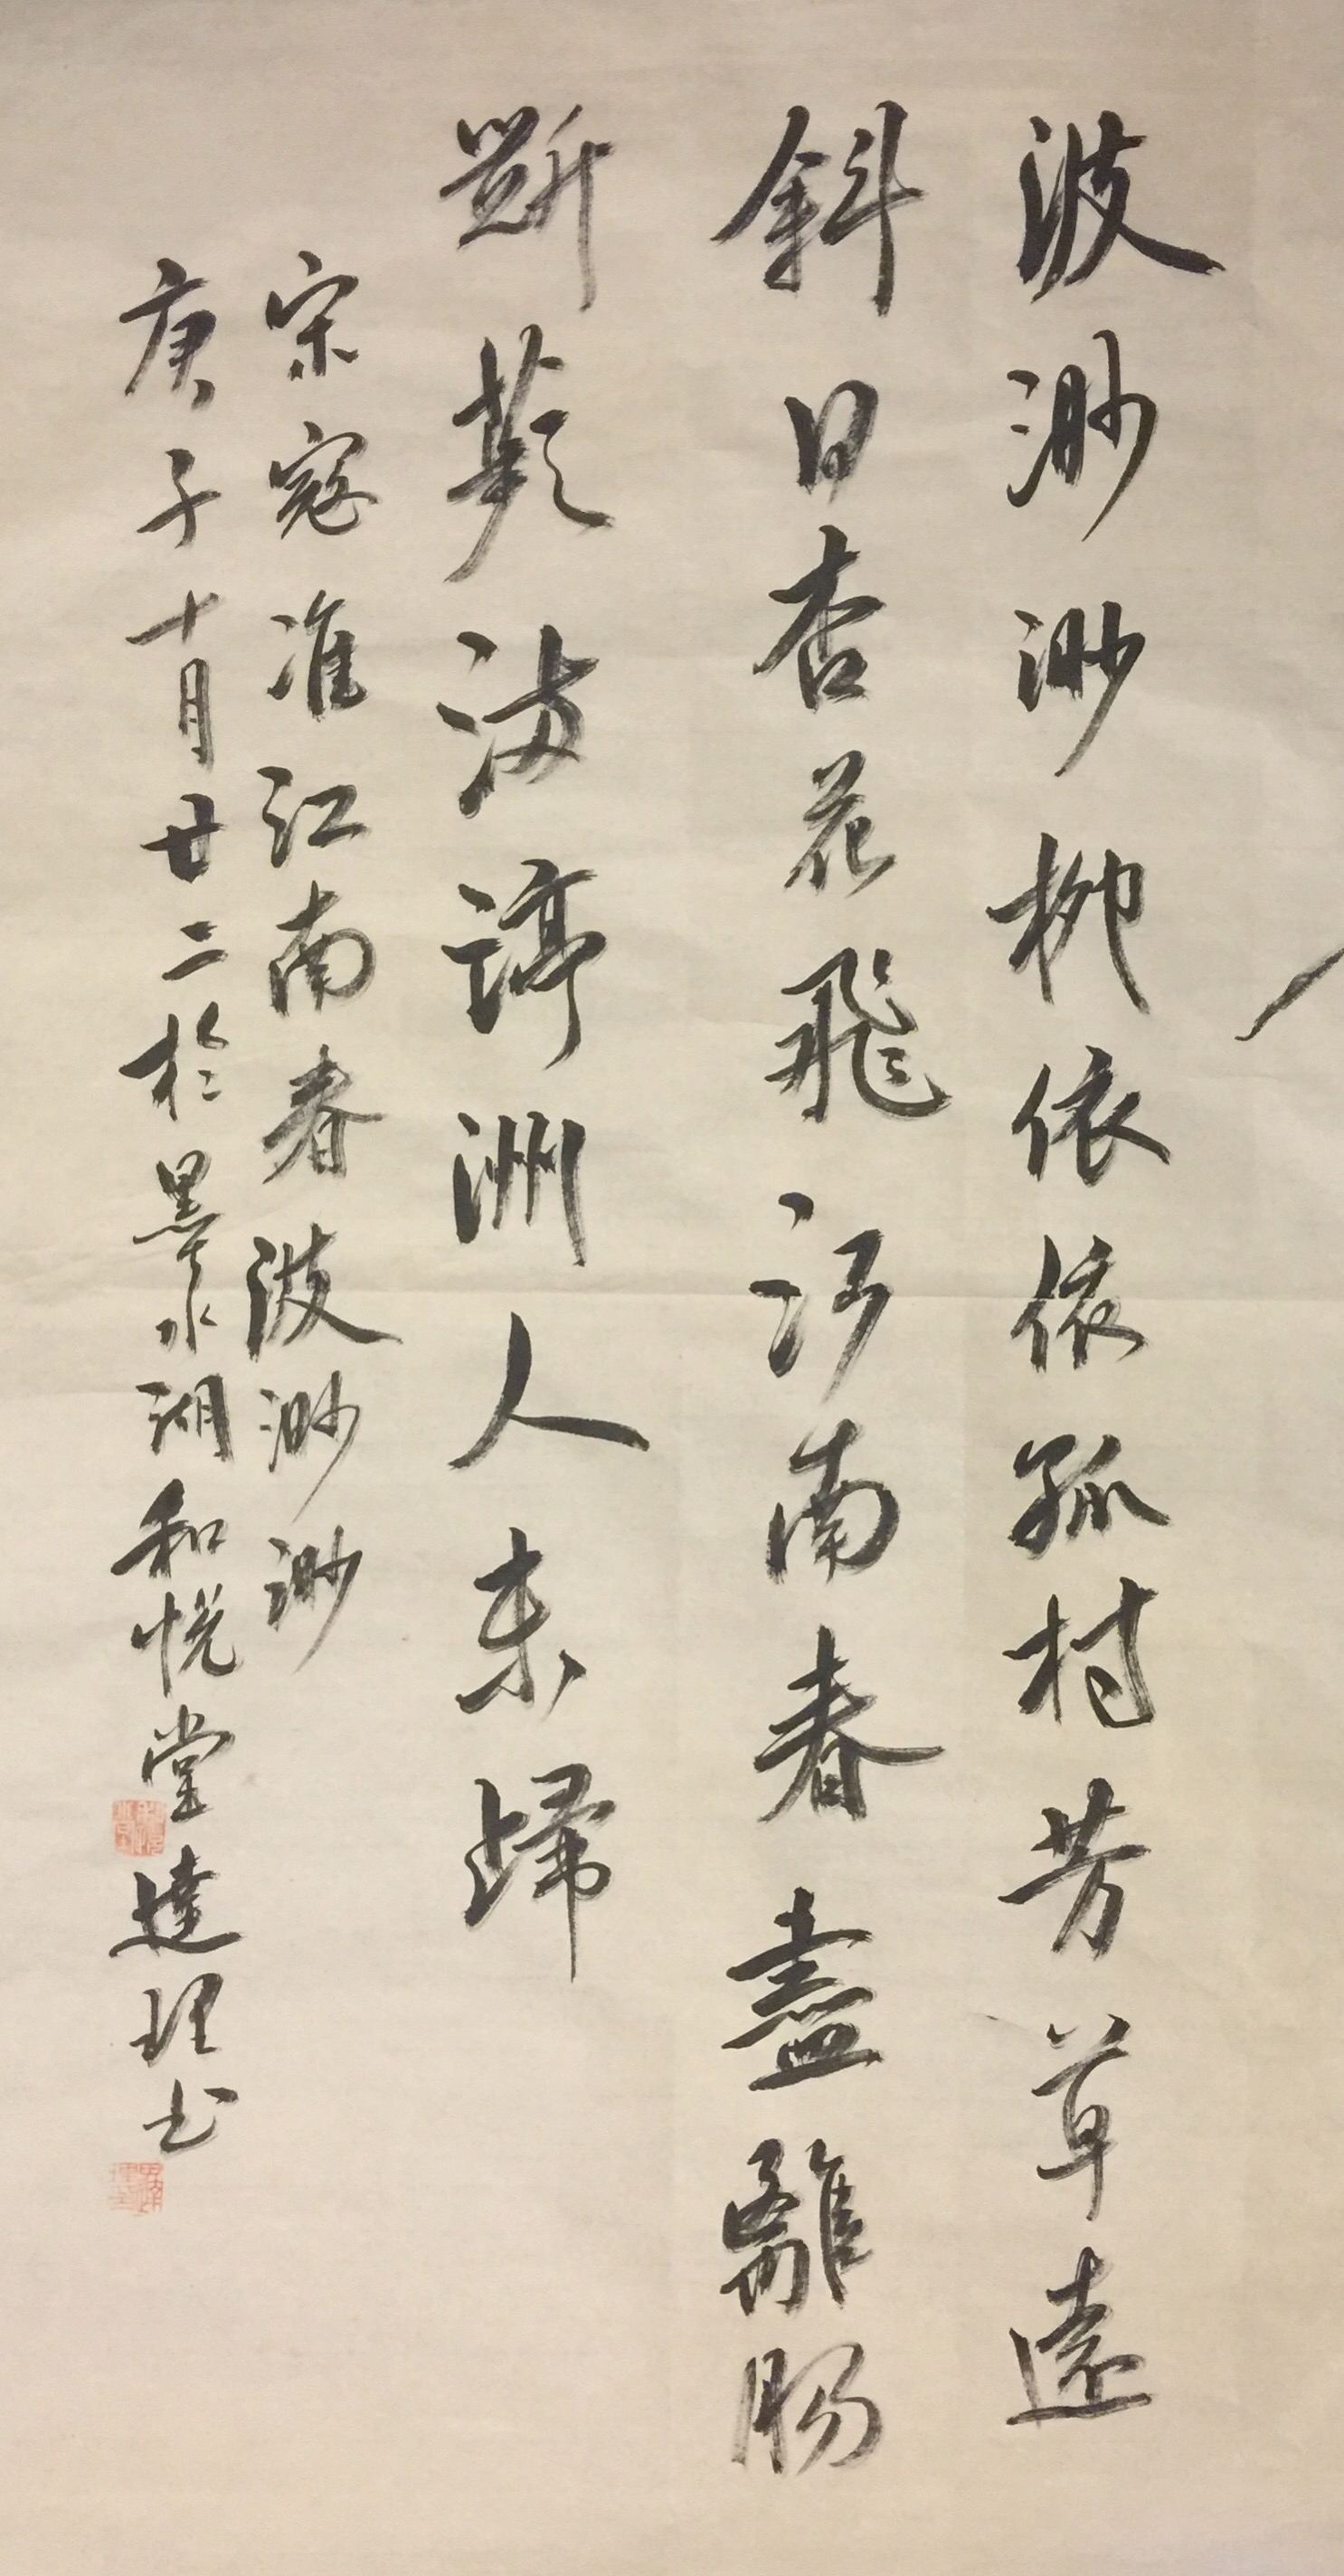 波渺渺柳依依孤村芳草遠
斜日杏花飛江南春盡離腸
斷蘋滿汀洲人未歸
宋寇准江南春波渺渺
庚子十月廿二於墨水湖和悅堂達理书